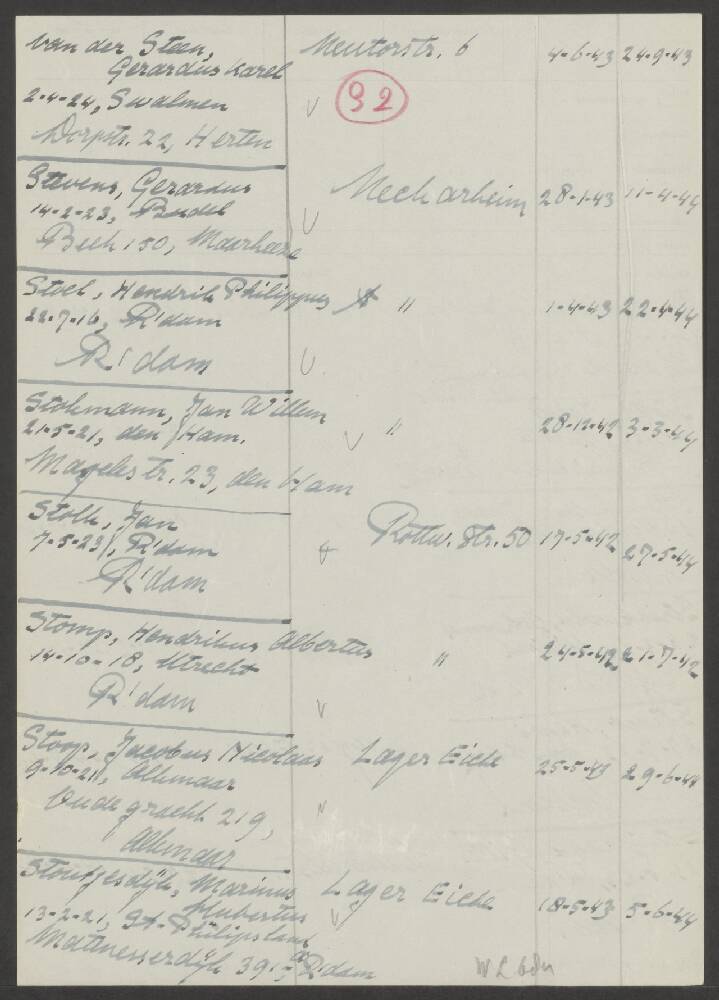 van der Steen, Meutorstr. 6 4-6-43 24-9-43
Gerardus Karel
2-4-24, Swalmen
92
Dorpstr. 22, Herten
Stevens, Gerardus Neckarheim 28-1-43 11-4-44
14-2-23, Budel
150, Maarheeze
Stoel, Hendrik Philippus " 1-4-43 22-4-44
22-7-16, R'dam
R'dam
Stokmann, Jan Willem " 28-12-42 3-3-44
21-5-21, den Ham.
str. 23, den Ham
Stolk, Jan Rottw. Str. 50 17-5-42 27-5-44
7-5-23, R'dam
R'dam
Stomp, Hendrikus Albertus " 24-5-42 21-7-42
14-10-18, Utrecht
R'dam
Stoop, Jacobus Nicolaas Lager Eiche 25-5-43 29-6-44
9-10-21, Alkmaar
Oude gracht 219,
Alkmaar
Stoutjesdijk, Marinus Lager Eiche 18-5-43 5-6-44
Hubertus
13-2-21, St. Philipsland
Mathenesserdijk 391, R'dam